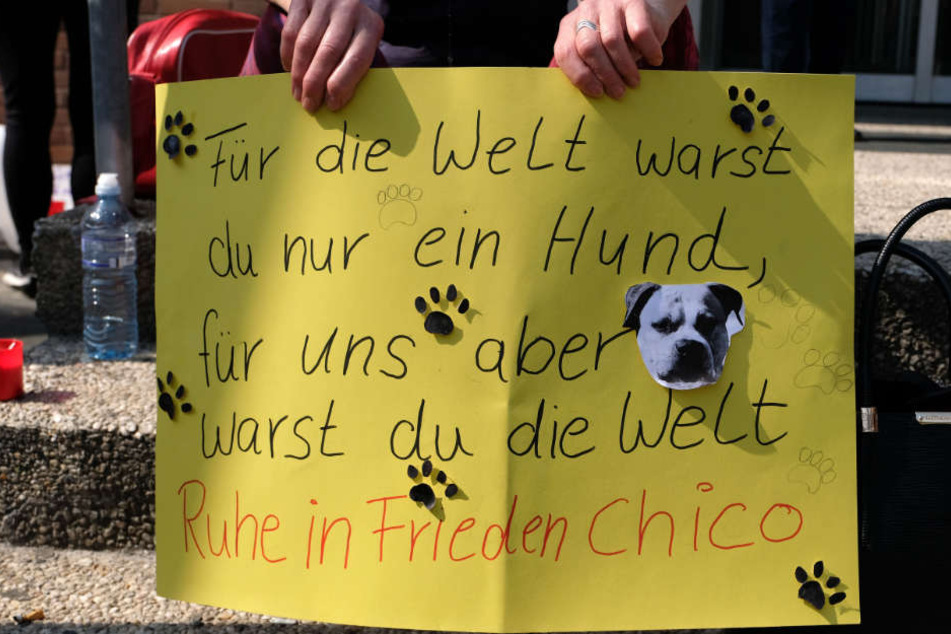 Für die Welt warst
du nur ein Hund,
für uns aber
warst du die Welt
Ruhe in Frieden Chico